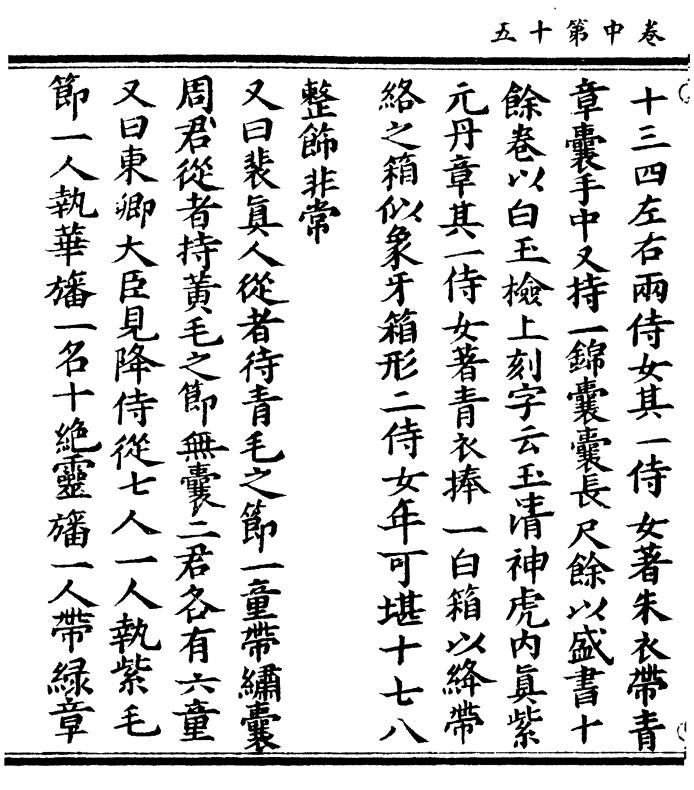 卷中第十五
十三四左右兩侍女其一侍女著朱衣帶青
章囊手中又持一錦囊囊長尺餘以盛書十
餘卷以白玉檢上刻字云玉清神虎内真紫
元丹章其一侍女著青衣捧一白箱以絳帶
絡之箱似象牙箱形二侍女年可堪十七八
整飾非常
又曰裴真人從者待青毛之節一童帶繡囊
周君從者持黃毛之節無囊二君各有六童
又曰東卿大臣見降侍從七人一人執紫毛
節一人執華旛一名十絶靈旛一人帶緑章